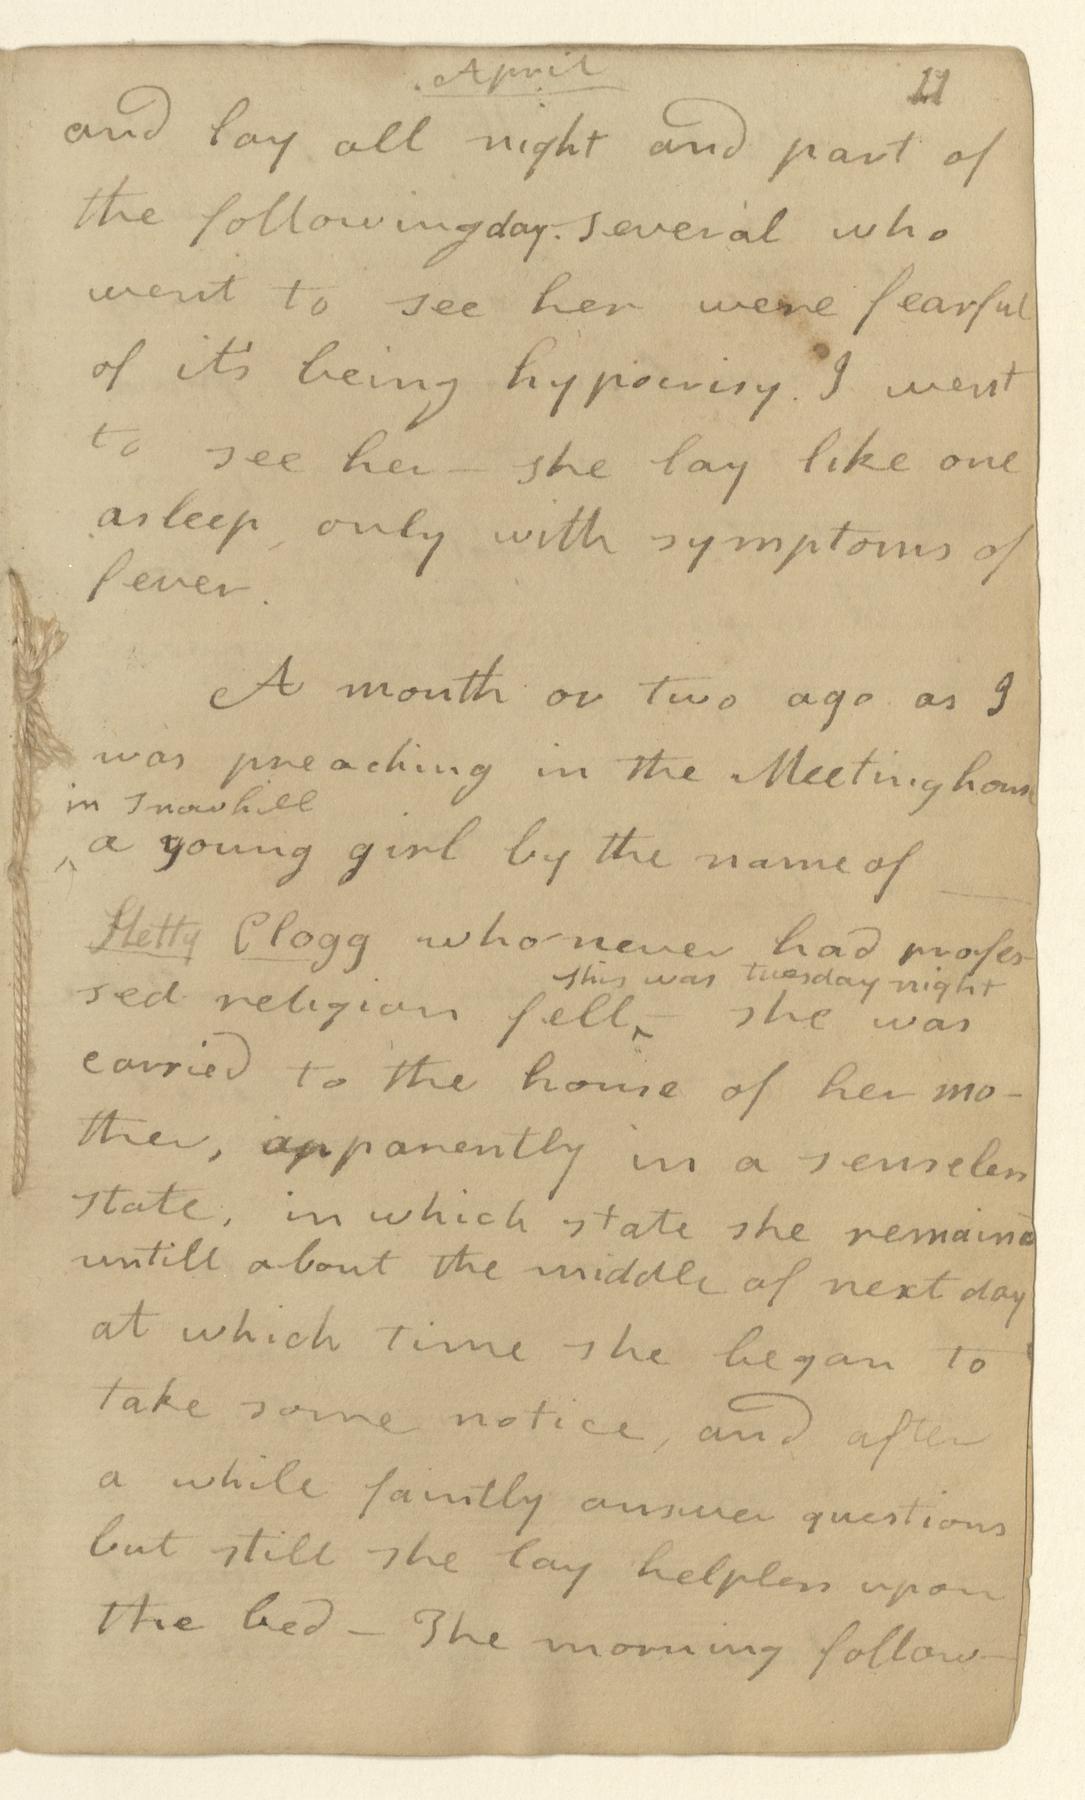 April
11
and lay all night and part of
the following day. Several who
went to see her were fearful
of it's being hypocrisy. I went
to see her – she lay like one
asleep, only with symptoms of
fever.
A month or two ago as I
was preaching in the Meetinghouse
in Snowhill
^ a young girl by the name of
Hetty Clogg who never had profes-
this was tuesday night
sed religion fell ^ – she was
carried to the house of her mo-
ther, apparently in a senseless
state, in which state she remained
untill about the middle of next day
at which time she began to
take some notice, and after
a while faintly answer questions
but still she lay helpless upon
the bed – The morning follow-